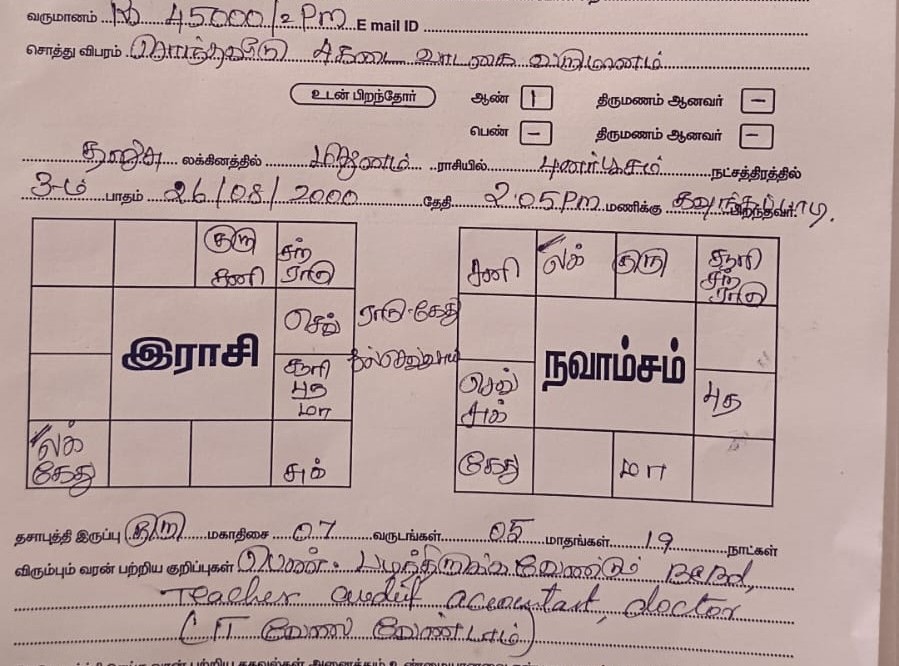 வருமானம் ...Rs 45000/2 Pm E mail ID
சொத்து விபரம் சொந்தவீடு 4கடை வாடகை வருமானம்
உடன் பிறந்தோர் ஆண் 1 திருமணம் ஆனவர் -
பெண் - திருமணம் ஆனவர் -
தனுசு லக்கினத்தில் மிதுனம் ராசியில் புனர்பூசம் நட்சத்திரத்தில்
3-ம் பாதம் 26/08/2000 தேதி 2.05 Pm மணிக்கு பிறந்தவர்.
குரு சனி
சந் ராகு
செவ்
சூரி புத மா
சுக்
லக் கேது
இராசி
ராகு-கேது
சனி
லக்
குரு
சூரி சந் ராகு
செவ் சுக்
புத
கேது
மா
நவாம்சம்
தசாபுத்தி இருப்பு குரு மகாதிசை 07 வருடங்கள் 05 மாதங்கள் 19 நாட்கள்
விரும்பும் வரன் பற்றிய குறிப்புகள் பெண். படித்திருக்க வேண்டும் B.Ed,
Teacher accountant, doctor
(IT வேலை வேண்டாம்)